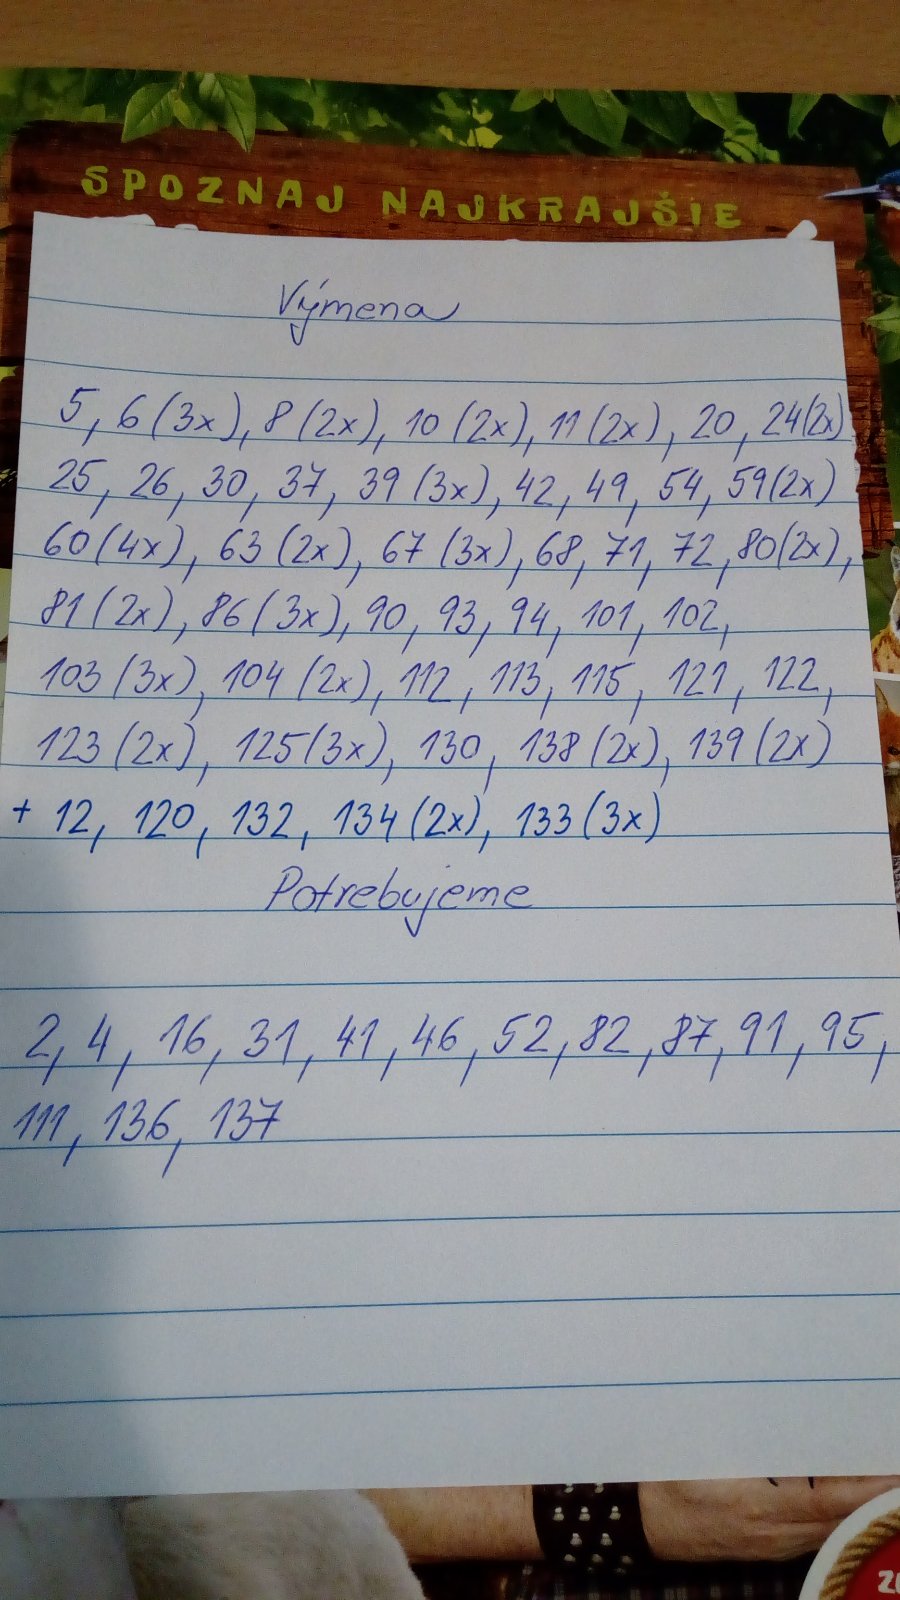 SPOZNAJ NAJKRAJŠIE
Výmena
5, 6 (3x), 8 (2x), 10 (2x), 11 (2x), 20, 24(2x)
25, 26, 30, 37, 39 (3x), 42, 49, 54, 59(2x)
60(4x), 63 (2x), 67 (3x), 68, 71, 72, 80(2x),
81(2x), 86(3x), 90, 93, 94, 101, 102,
103 (3x), 104 (2x), 112, 113, 115, 121, 122,
123 (2x), 125(3x), 130, 138 (2x), 139 (2x)
+ 12, 120, 132, 134(2x), 133(3x)
Potrebujeme
2, 4, 16, 31, 41, 46, 52, 82, 87, 91, 95,
111, 136, 137